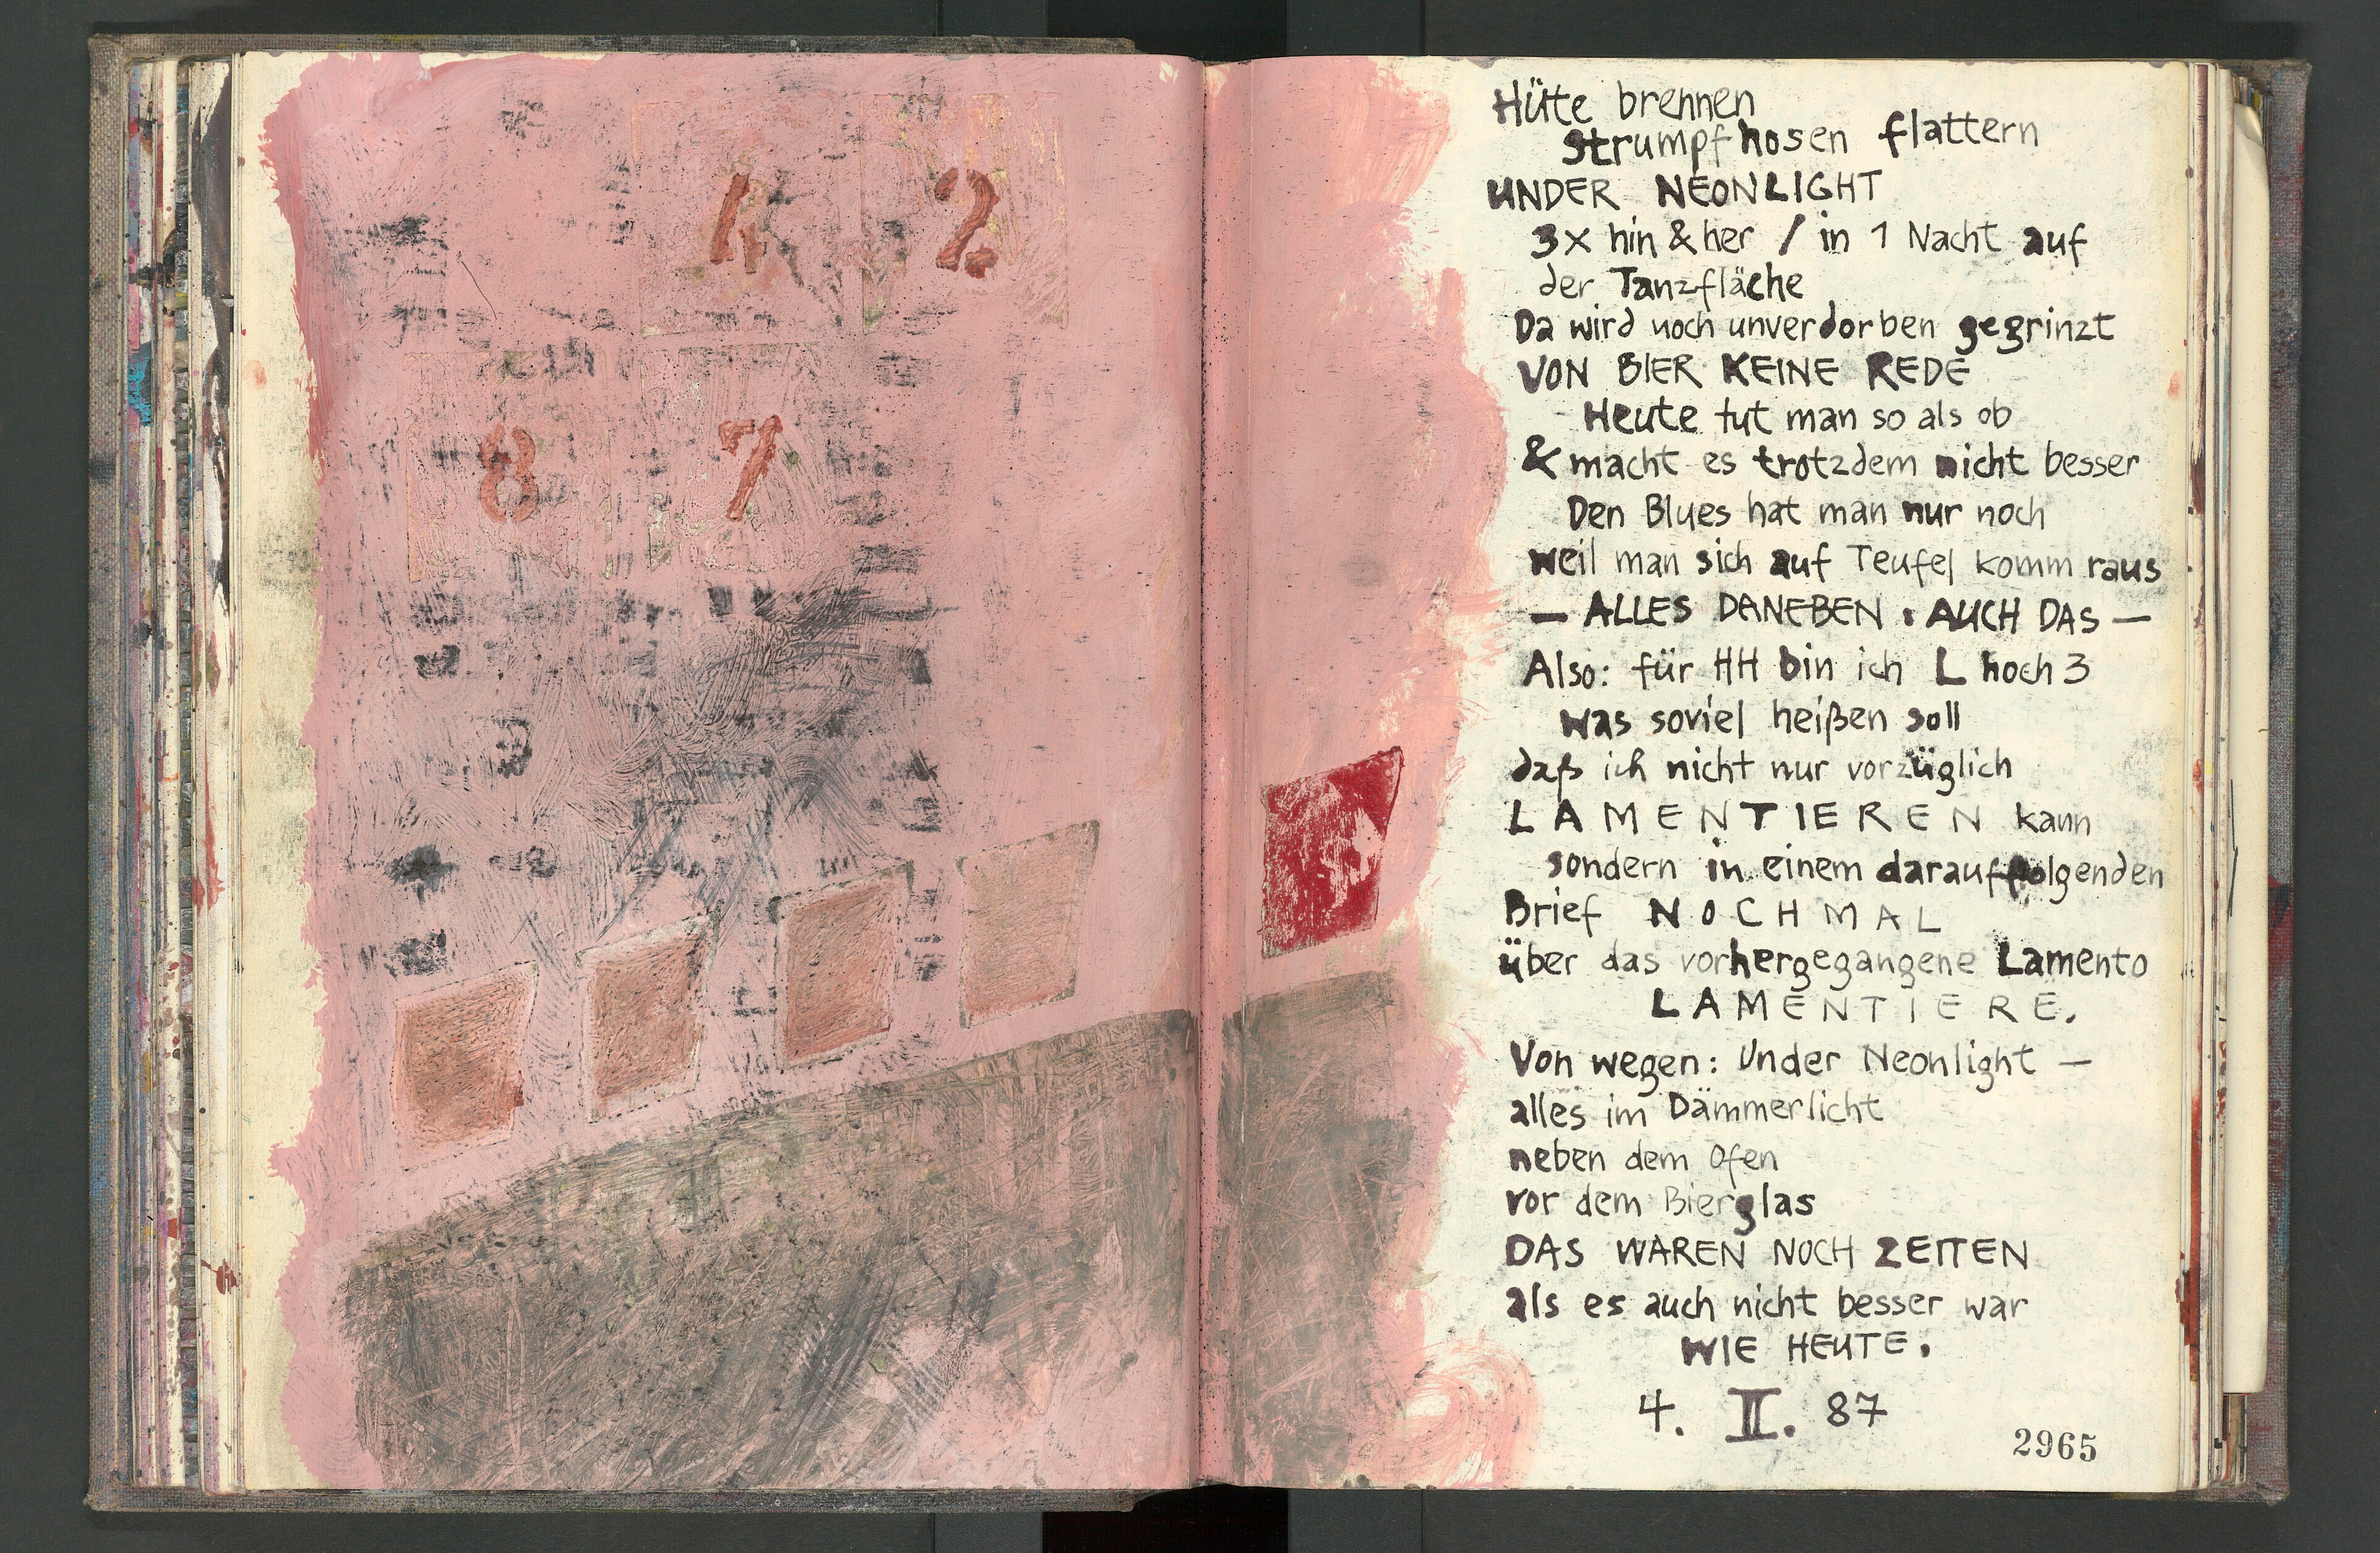 4 2
8 7
Hüte brennen
strumpfhosen flattern
UNDER NEONLIGHT
3x hin & her / in 1 Nacht auf
der Tanzfläche
Da wird noch unverdorben gegrinzt
VON BIER KEINE REDE
Heute tut man so als ob
& macht es trotzdem nicht besser
Den Blues hat man nur noch
weil man sich auf Teufel komm raus
— ALLES DANEBEN . AUCH DAS —
Also: für HH bin ich L hoch 3
was soviel heißen soll
daß ich nicht nur vorzüglich
LAMENTIEREN kann
sondern in einem darauffolgenden
Brief NOCHMAL
über das vorhergegangene Lamento
LAMENTIERE.
Von wegen: Under Neonlight —
alles im Dämmerlicht
neben dem Ofen
vor dem Bierglas
DAS WAREN NOCH ZEITEN
als es auch nicht besser war
WIE HEUTE.
4. II. 87
2965